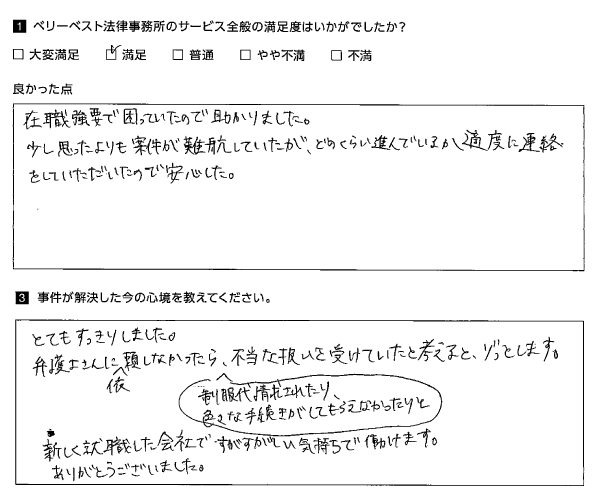 1 ベリーベスト法律事務所のサービス全般の満足度はいかがでしたか？
□ 大変満足 ☑ 満足 □ 普通 □ やや不満 □ 不満
良かった点
在職強要で困っていたので助かりました。
少し思ったよりも案件が難航していたが、どのくらい進んでいるか、適度に連絡
をしていただいたので安心した。
3 事件が解決した今の心境を教えてください。
とてもすっきりしました。
弁護士さんに依頼しなかったら、不当な扱いを受けていたと考えると、ゾッとします。
制服代請求されたり、
色々な手続きがしてもらえなかったりと
新しく就職した会社ですがすがしい気持ちで働けます。
ありがとうございました。